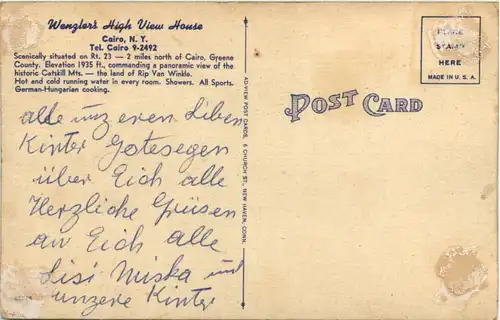 Wenzler's High View House
Cairo, N. Y.
Tel. Cairo 9-2492
Scenically situated on Rt. 23 — 2 miles north of Cairo, Greene
County. Elevation 1935 ft., commanding a panoramic view of the
historic Catskill Mts. — the land of Rip Van Winkle.
Hot and cold running water in every room. Showers. All Sports.
German-Hungarian cooking.
alle unzeren Liben
Kinter Gotesegen
über Eich alle
Herzliche Grüsen
an Eich alle
Lisi Miska und
unzere Kinter
AD-VIEW POST CARDS, 5 CHURCH ST., NEW HAVEN, CONN.
POST CARD
PLACE
STAMP
HERE
MADE IN U. S. A.